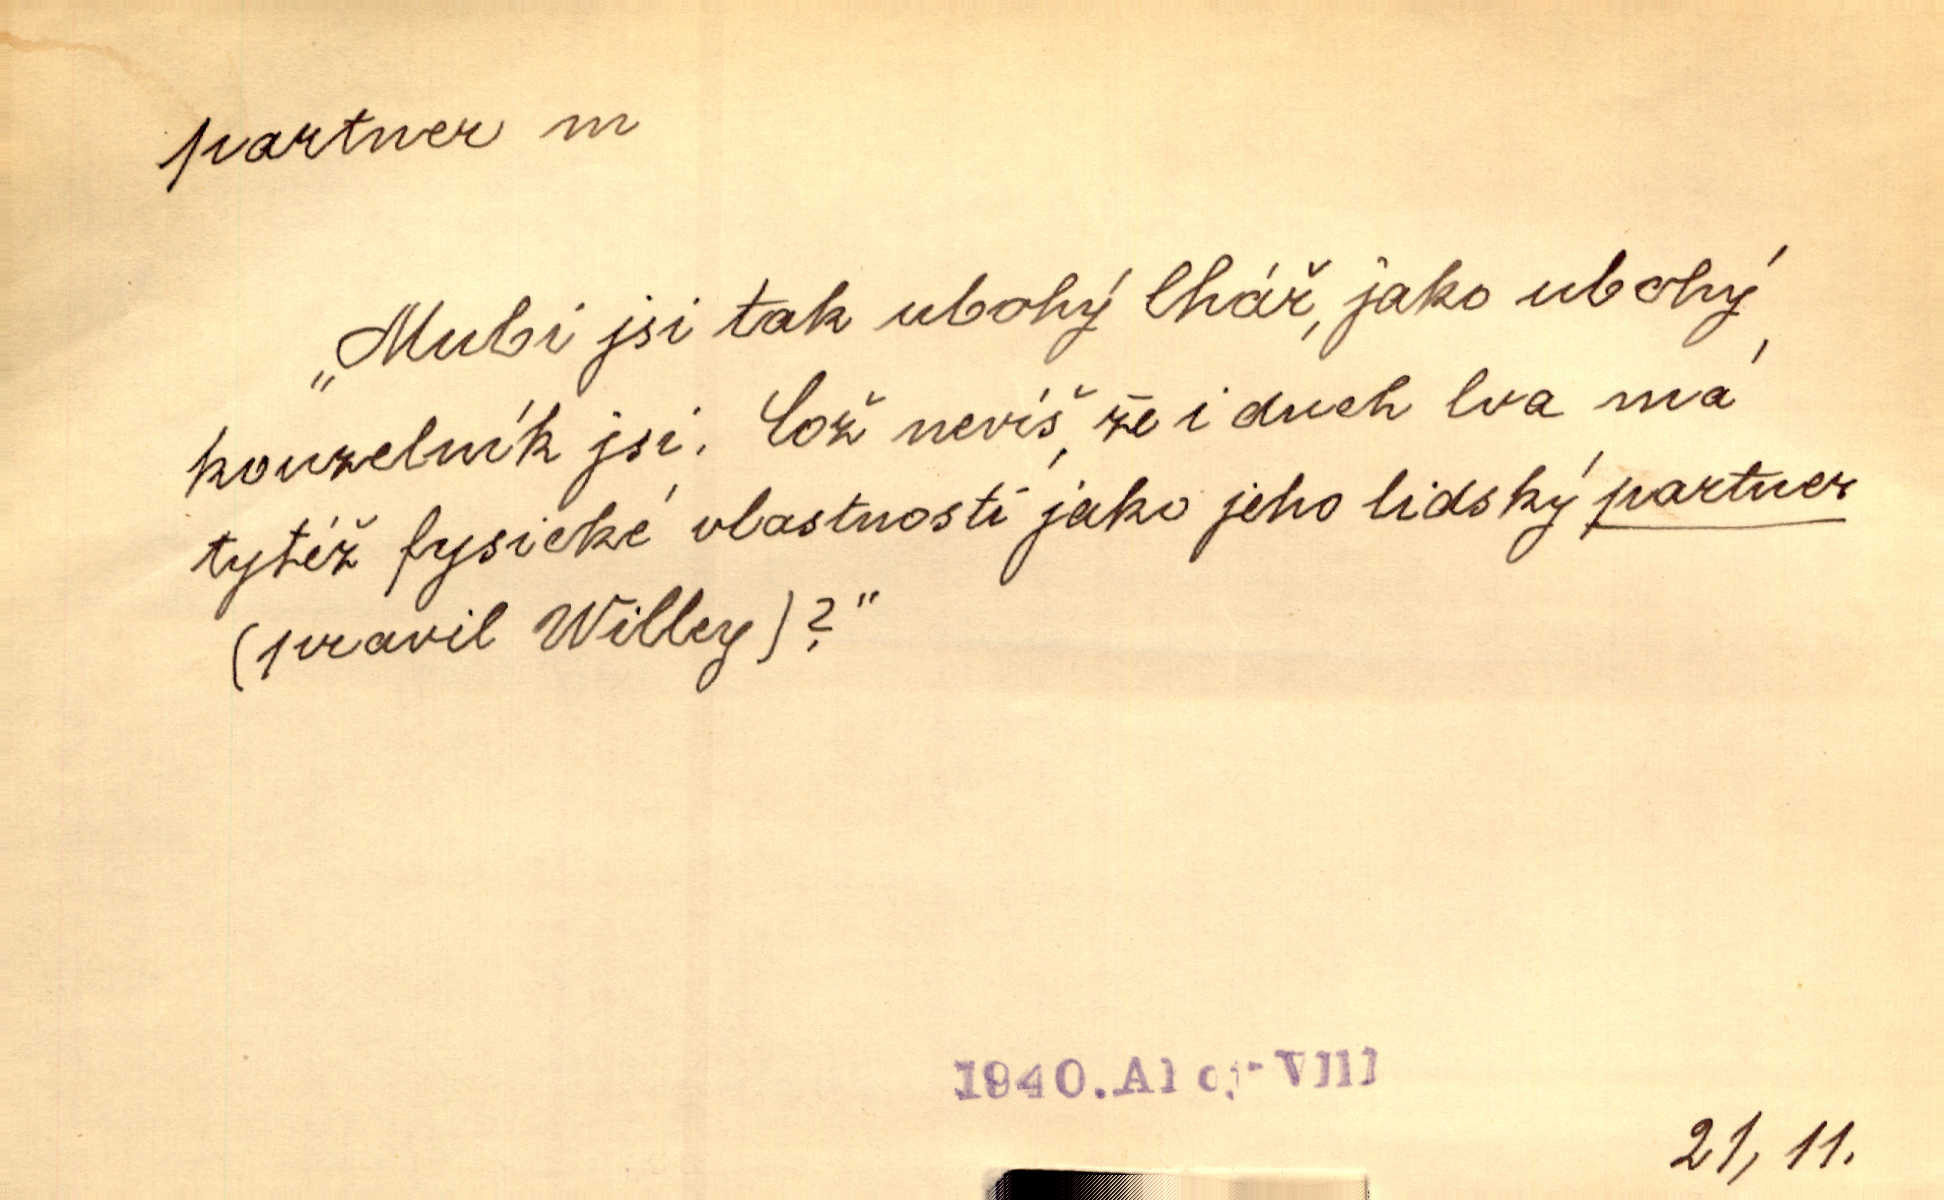 partner m
„Mubi jsi tak ubohý lhář, jako ubohý
kouzelník jsi. Což nevíš, že i duch lva má
tytéž fysické vlastnosti jako jeho lidský partner
(pravil Willey)?"
1940. Aloj-VIII
21, 11.